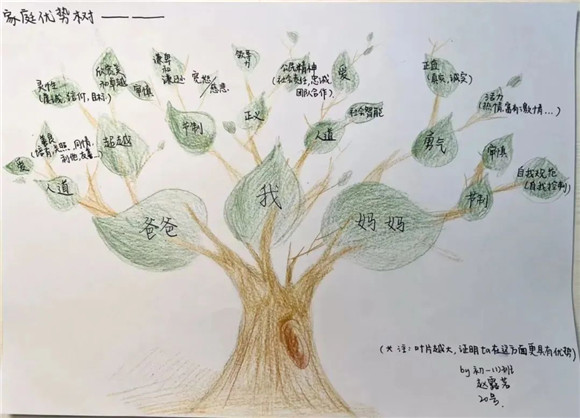 家庭优势树————
欣赏美
和卓越
谦卑
和
谦逊
宽恕/
慈悲
领导力
公民精神
(社会责任,忠诚
团队合作)
爱
正直
(真实,诚实)
灵性
(真诚,信仰,目标)
审慎
活力
(热情,富有激情…)
社会智能
正义
节制
人道
勇气
超越
爱
审慎
自我规范
(自我控制)
人道
节制
爸爸
我
妈妈
(*注:叶片越大,证明ta在这方面更具有优势)
by初一
20号